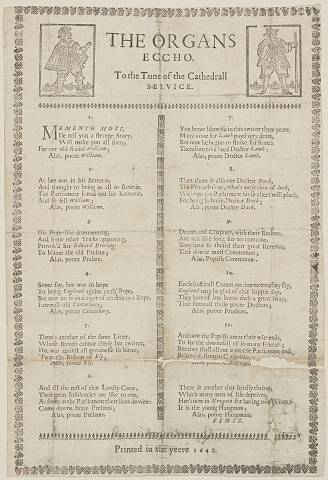 THE ORGANS
ECCHO.
To the Tune of the Cathedrall
SERVICE.
1.
MEMENTO MORI,
I'le tell you a strange Story,
Will make you all sorry,
For our old friend William;
Alas, poore William.
2.
As hee was in his Braverie,
And thought to bring us all in slaverie,
The Parliament found out his Knaverie,
And so fell William;
Alas, poore William.
3.
His Pope-like domineering,
And some other Tricks appearing,
Provok'd Sir Edward Deering
To blame the old Prelate;
Alas, poore Prelate.
4.
Some say, hee was in hope
To bring England againe to th' Pope,
But now he is in danger of an Axe or a Rope,
Farewell old Canterbury,
Alas, poore Canterbury.
5.
There's another of the same Litter,
Whose Breech cannot chuse but twitter,
Hee was against all goodnesse so bitter,
'Twas the Bishop of Ely,
Alas, poore Ely.
6.
And all the rest of that Lordly Crew,
Their great Insolencies are like to rue,
As soone as the Parliament their lives doe view:
Come downe, brave Prelates;
Alas, poore Prelates.
7.
You know
this two or three yeare,
Many a one for Lamb payd very deare,
But now he begins to stinke for feare:
Therefore be he al Doctor Lamb;
Alas, poore Doctor Lamb.
8.
Then there is also one Doctor Duck,
The Proverb says, What's worse than ill luck,
We hope the Parliament his feathers will pluck,
For being so busie, Doctor Duck;
Alas, poore Doctor Duck.
9.
Deanes and Chapters, with their Retinue,
Are not like long for to continue,
They have so abus'd their great Revenue,
That downe must Ceremonies;
Alas, Popish Ceremonies.
10.
Ecclesiasticall Courts are downe going they say,
England may be glad of that happie day,
They have of late borne such a great sway,
That farewell those poore Doctors;
Alas, poore Proctors.
11.
And now the Papists are at their wits ends,
To see the downefall of so many Friends;
But they shall all rue as the Parliament ends,
12.
There is another that hardly thrives,
Which many men of life deprives,
Hee's now in Newgate for having two Wives,
It is the young Hangman;
Alas, poore Hangman.
FINIS.
Printed in the yeere 1641.